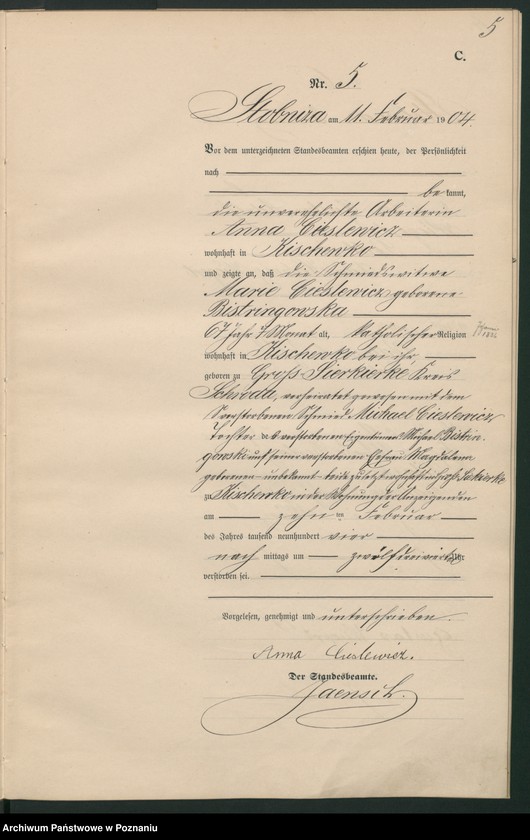 5
C.
Nr. 5.
Slobnica am 11. Februar 1904.
Vor dem unterzeichneten Standesbeamten erschien heute, der Persönlichkeit
nach
be kannt,
die unverehelichte Arbeiterin
Anna Cieslewicz
wohnhaft in Kischewko
und zeigte an, daß die Schmiedswitwe
Marie Cieslewicz geborene
Bistringonska
67 Jahr 7 Monat alt, katholischer Religion
wohnhaft in Kischewko bei ihr,
geboren zu Groß Sierkierke Kreis
Schroda, verheiratet gewesen mit dem
verstorbenen Schmied Michael Cieslewicz
Tochter des verstorbenen Eigentümers Michael Bistrin
gonski und seiner verstorbenen Ehefrau Magdalena
geborenen unbekannt beide zuletzt wohnhaft in Groß Siekierke
zu Kischewko in der Wohnung der Anzeigenden
am zehn ten Februar
des Jahres tausend neunhundert vier
nach mittags um zwölf dreiviertel Uhr
verstorben sei.
Vorgelesen, genehmigt und unterschrieben.
Anna Cieslewicz.
Der Standesbeamte.
Jaensch.
Archiwum Państwowe w Poznaniu